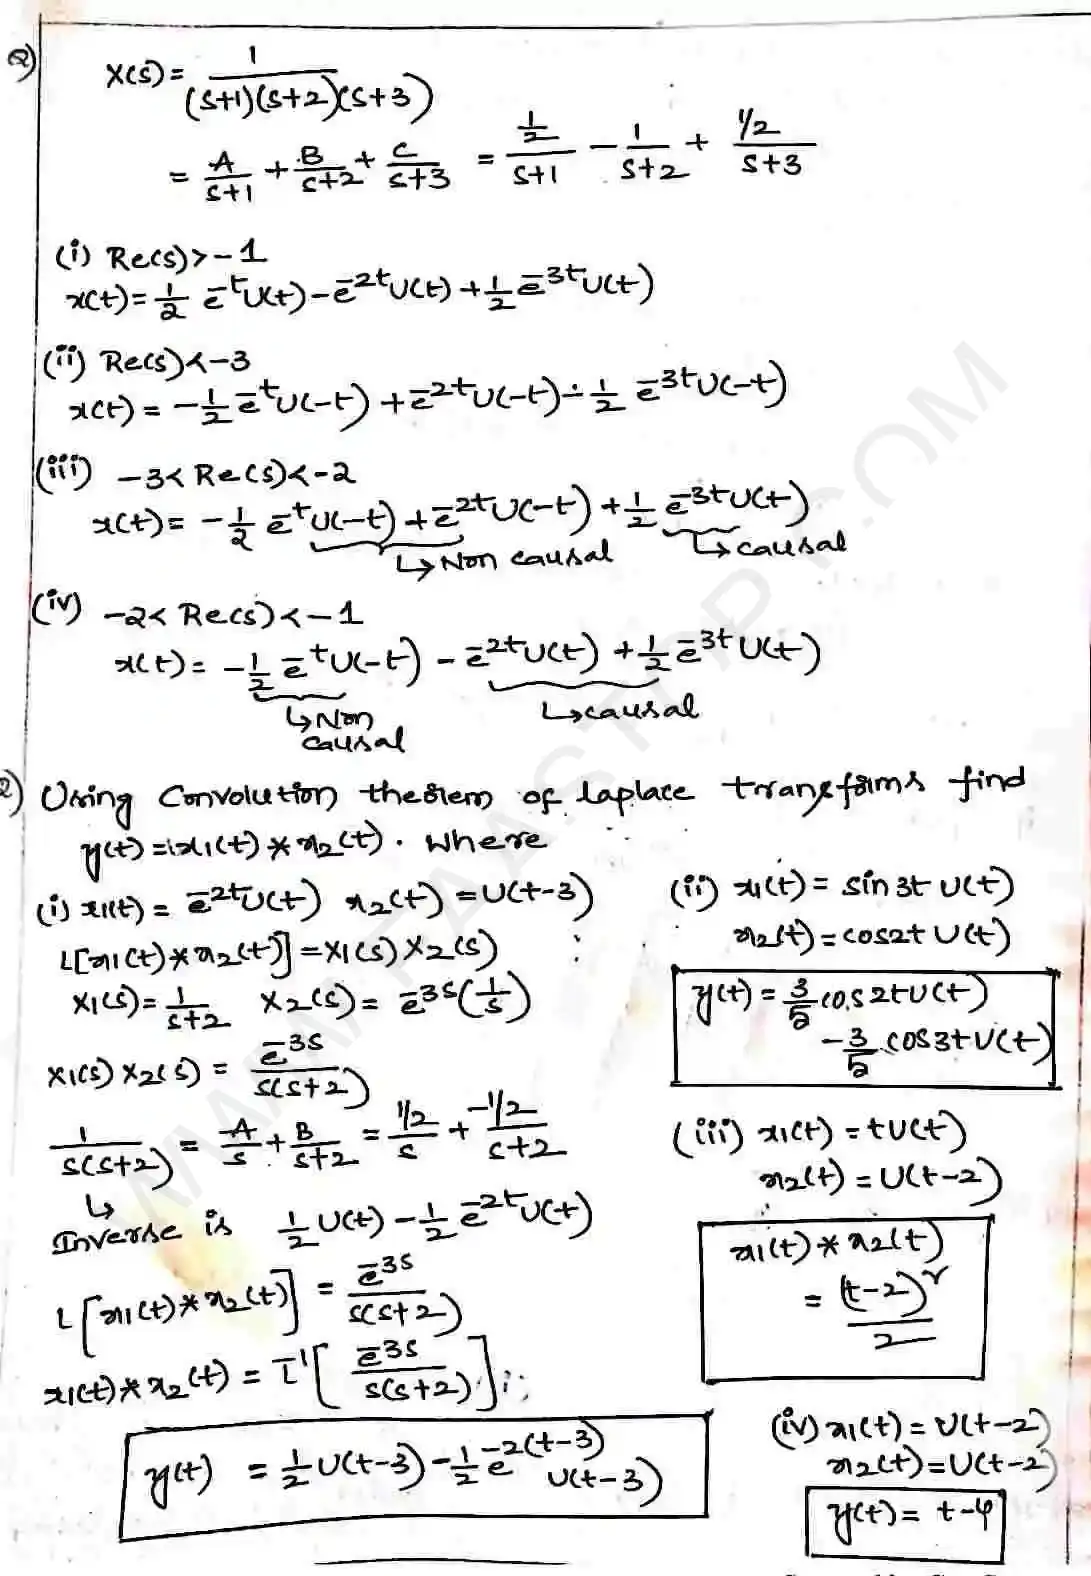 Q)
X(s) = 1/((s+1)(s+2)(s+3))
= A/(s+1) + B/(s+2) + C/(s+3) = (1/2)/(s+1) - 1/(s+2) + (1/2)/(s+3)
(i) Re(s) > -1
x(t) = 1/2 e^-t U(t) - e^-2t U(t) + 1/2 e^-3t U(t)
(ii) Re(s) < -3
x(t) = -1/2 e^-t U(-t) + e^-2t U(-t) - 1/2 e^-3t U(-t)
(iii) -3 < Re(s) < -2
x(t) = -1/2 e^-t U(-t) + e^-2t U(-t) + 1/2 e^-3t U(t)
↳ Non causal ↳ causal
(iv) -2 < Re(s) < -1
x(t) = -1/2 e^-t U(-t) - e^-2t U(t) + 1/2 e^-3t U(t)
↳ Non causal ↳ causal
2) Using Convolution theorem of laplace transforms find
y(t) = x1(t) * x2(t). Where
(i) x1(t) = e^-2t U(t) x2(t) = U(t-3)
L[x1(t) * x2(t)] = X1(s) X2(s)
X1(s) = 1/(s+2) X2(s) = e^-3s (1/s)
X1(s) X2(s) = e^-3s/(s(s+2))
1/(s(s+2)) = A/s + B/(s+2) = (1/2)/s + (-1/2)/(s+2)
↳
Inverse is 1/2 U(t) - 1/2 e^-2t U(t)
L[x1(t) * x2(t)] = e^-3s/(s(s+2))
x1(t) * x2(t) = L^-1[e^-3s/(s(s+2))]
y(t) = 1/2 U(t-3) - 1/2 e^-2(t-3) U(t-3)
(ii) x1(t) = sin3t U(t)
x2(t) = cos2t U(t)
y(t) = 3/5 cos2t U(t)
- 3/5 cos3t U(t)
(iii) x1(t) = t U(t)
x2(t) = U(t-2)
x1(t) * x2(t)
= (t-2)^2/2
(iv) x1(t) = U(t-2)
x2(t) = U(t-2)
y(t) = t-4